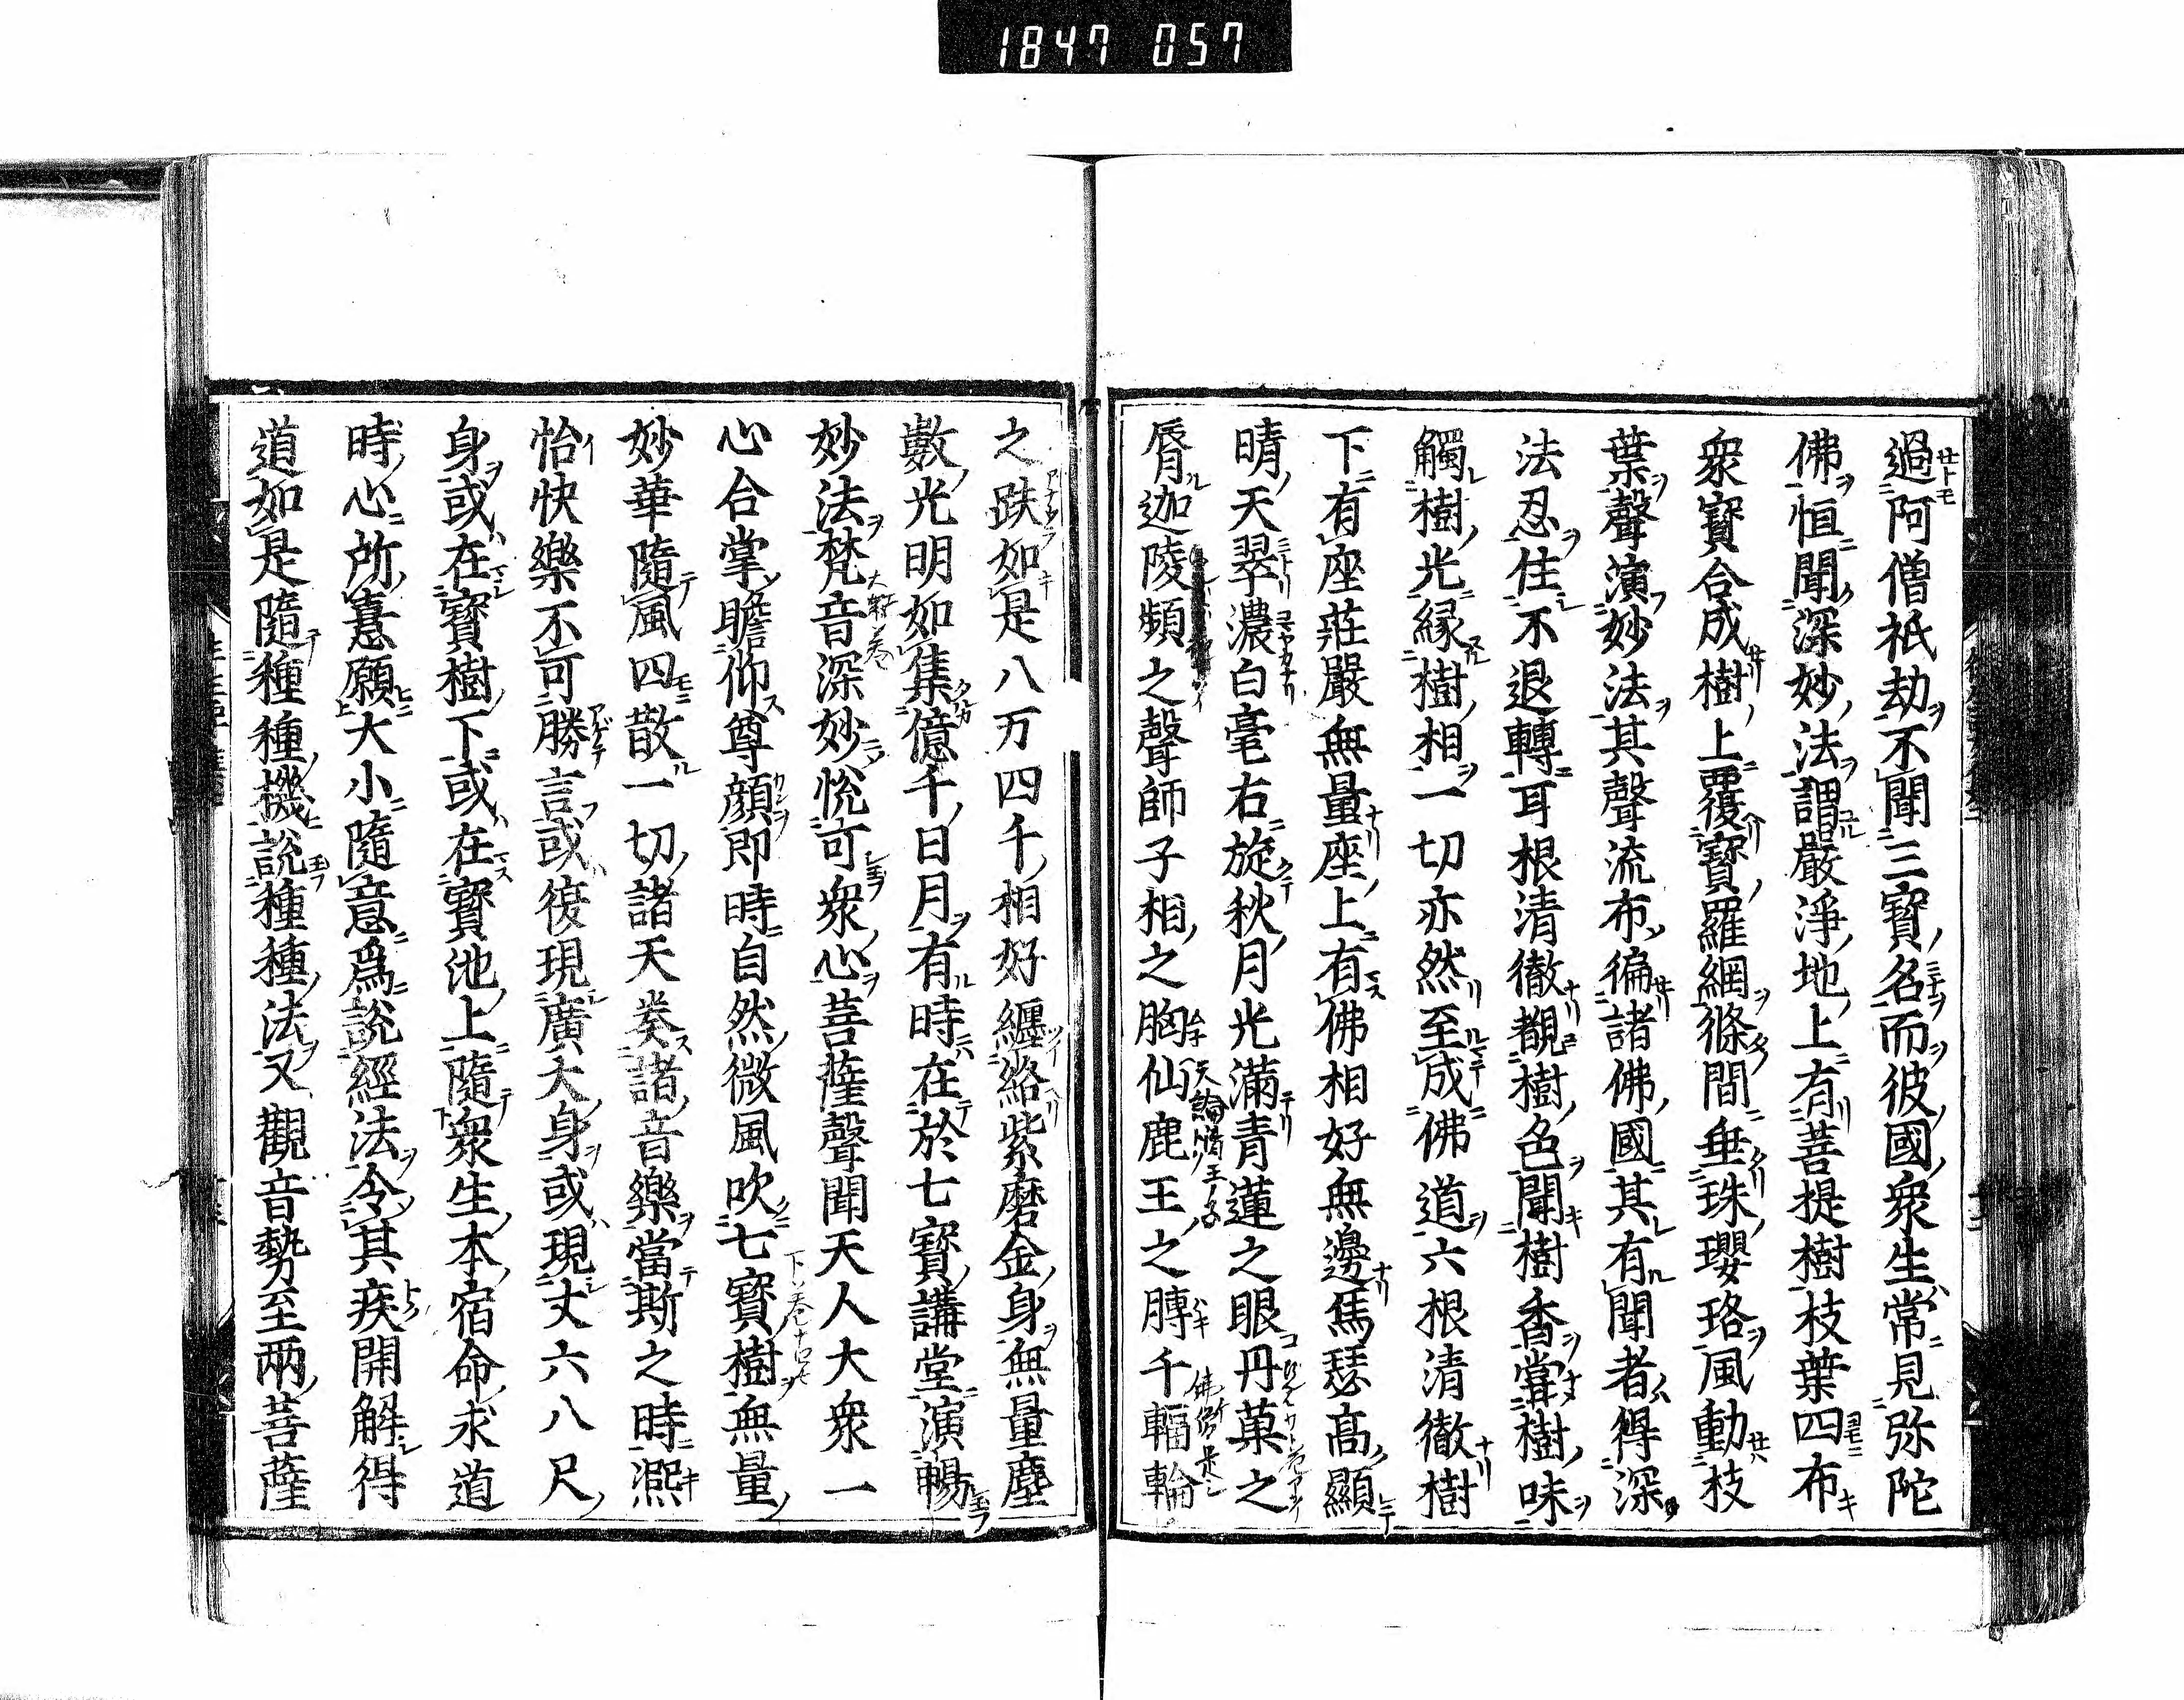 1847 057
過阿僧祇劫不聞三寳名而彼國衆生常見弥陀
佛恒聞深妙法謂嚴淨地上有菩提樹枝葉四布
衆寳合成樹上覆寳羅網條間垂珠瓔珞風動枝
葉聲演妙法其聲流布徧諸佛國其有聞者得深
法忍住不退轉耳根清徹覩樹色聞樹香甞樹味
觸樹光縁樹相一切亦然至成佛道六根清徹樹
下有座莊嚴無量座上有佛相好無邊烏瑟高顯
晴天翠濃白毫右旋秋月光滿青蓮之眼丹菓之
脣迦陵頻之聲師子相之胸仙鹿王之膞千輻輪
之趺如是八万四千相好纏絡紫磨金身無量塵
數光明如集億千日月有時在於七寳講堂演暢
妙法梵音深妙悅可衆心菩薩聲聞天人大衆一
心合掌瞻仰尊顔即時自然微風吹七寳樹無量
妙華隨風四散一切諸天奏諸音樂當斯之時凞
怡快樂不可勝言或復現廣大身或現丈六八尺
身或在寳樹下或在寳池上隨衆生本宿命求道
時心所憙願大小隨意爲說經法令其疾開解得
道如是隨種種機說種種法又觀音勢至兩菩薩